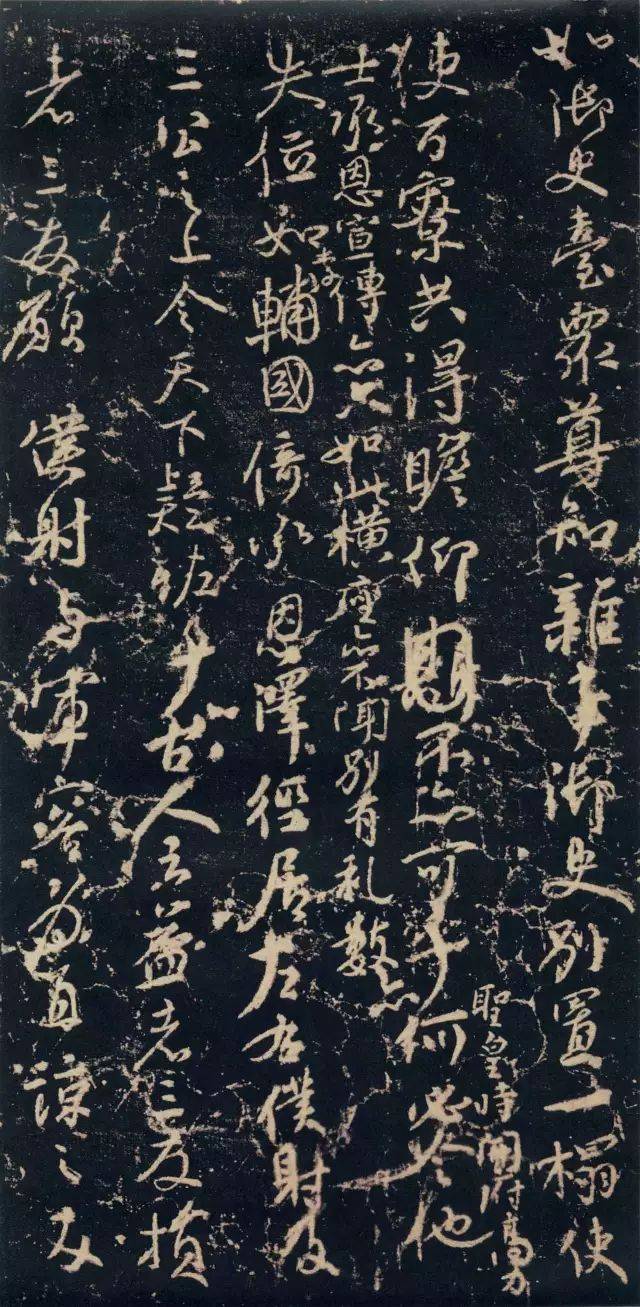 如御史臺衆尊知雜事御史別置一榻使
使百寮共得瞻仰不亦可乎何必令他
聖皇時開府高力
士承恩宣傳亦只如此橫座亦不聞別有礼數亦
失位如李輔國倚承恩澤徑居左右僕射及
三公之上令天下疑恠乎古人云益者三友損
者三友願僕射与軍容為直諒之友